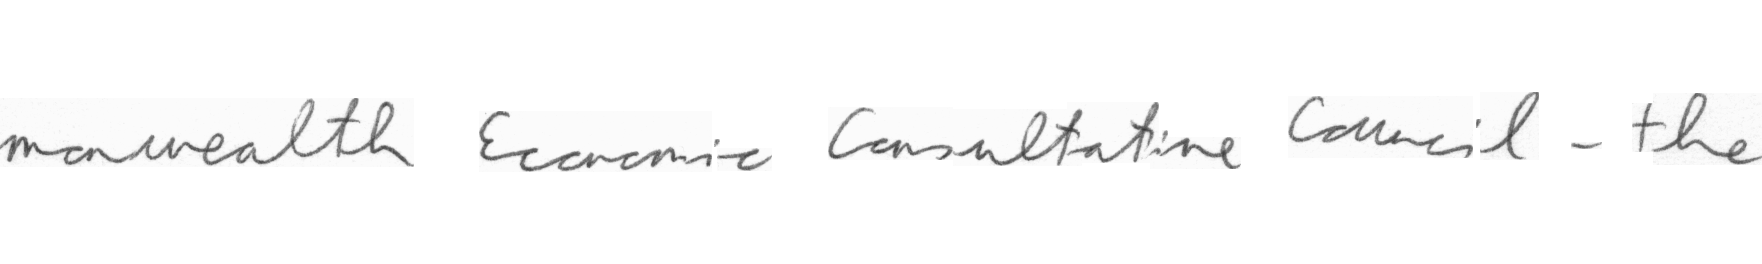 monwealth Economic Consultative Council - the